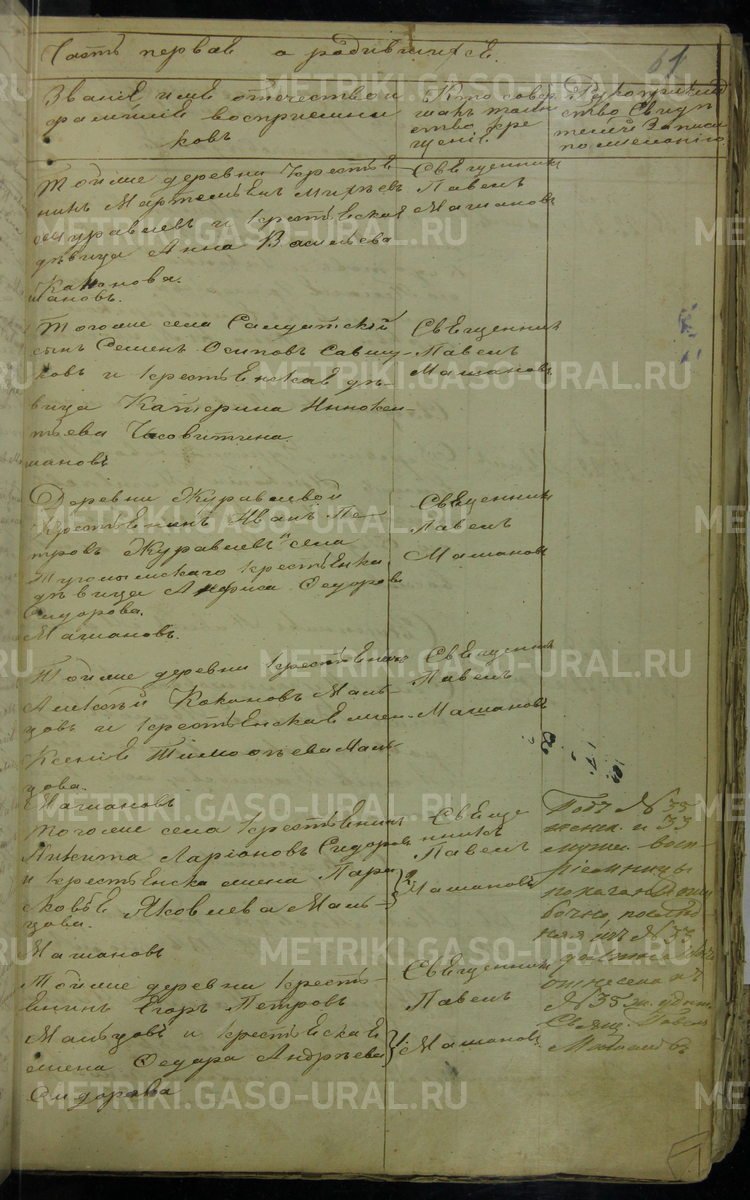 Часть первая о родившихся.
61
Званіе имя отчество и
фамиліе воспріемни
ковъ
Кто совер
шалъ таин
ство кре
щенія.
Рукоприклад
ство свидѣ
телей записи
по желанію.
Тойже деревни Крестья
нинъ
Журавлевъ и Крестьянская
дѣвица Анна Васильева
Казанова.
Священникъ
Павелъ
Машановъ
Тогоже села Салдатскій
сынъ Семенъ Осиповъ Савиц
ковъ и крестьянская дѣ-
вица Катерина Инокен-
тьева Часовитина.
Священникъ
Павелъ
Машановъ
Деревни Журавлевой
Крестьянинъ Иванъ Пе-
тровъ Журавлевъ и села
Тугомымскаго крестьянска
дѣвица Анфиса Федорова
Сидорова.
Машановъ.
Священникъ
Павелъ
Машановъ
Тойже деревни Крестьянинъ
Алексѣй Кокановъ Маль-
цовъ и крестьянская жен
Ксенія Тимофѣева Маль-
цова.
Машановъ
Священникъ
Павелъ
Машановъ
Тогоже села Крестьянинъ
Никита Ларіоновъ Сидоровъ
и Крестьянска жена Пара
сковья Яковлева Маль-
цова.
Машановъ
Свяще
нникъ
Павелъ
Машановъ
Подъ № 35
женск. и 33
мужс. вос-
пріемницы
оши
бочно, послѣд
няя изъ № 33
должна быть
отнесена къ
№ 35
Свящ. Павелъ
Тойже деревни Кресть-
янинъ Егоръ Петровъ
Мальцовъ и Крестьская
жена Федора Андрѣева
Сидорова
Священникъ
Павелъ
Машановъ
METRIKI.GASO-URAL.RU